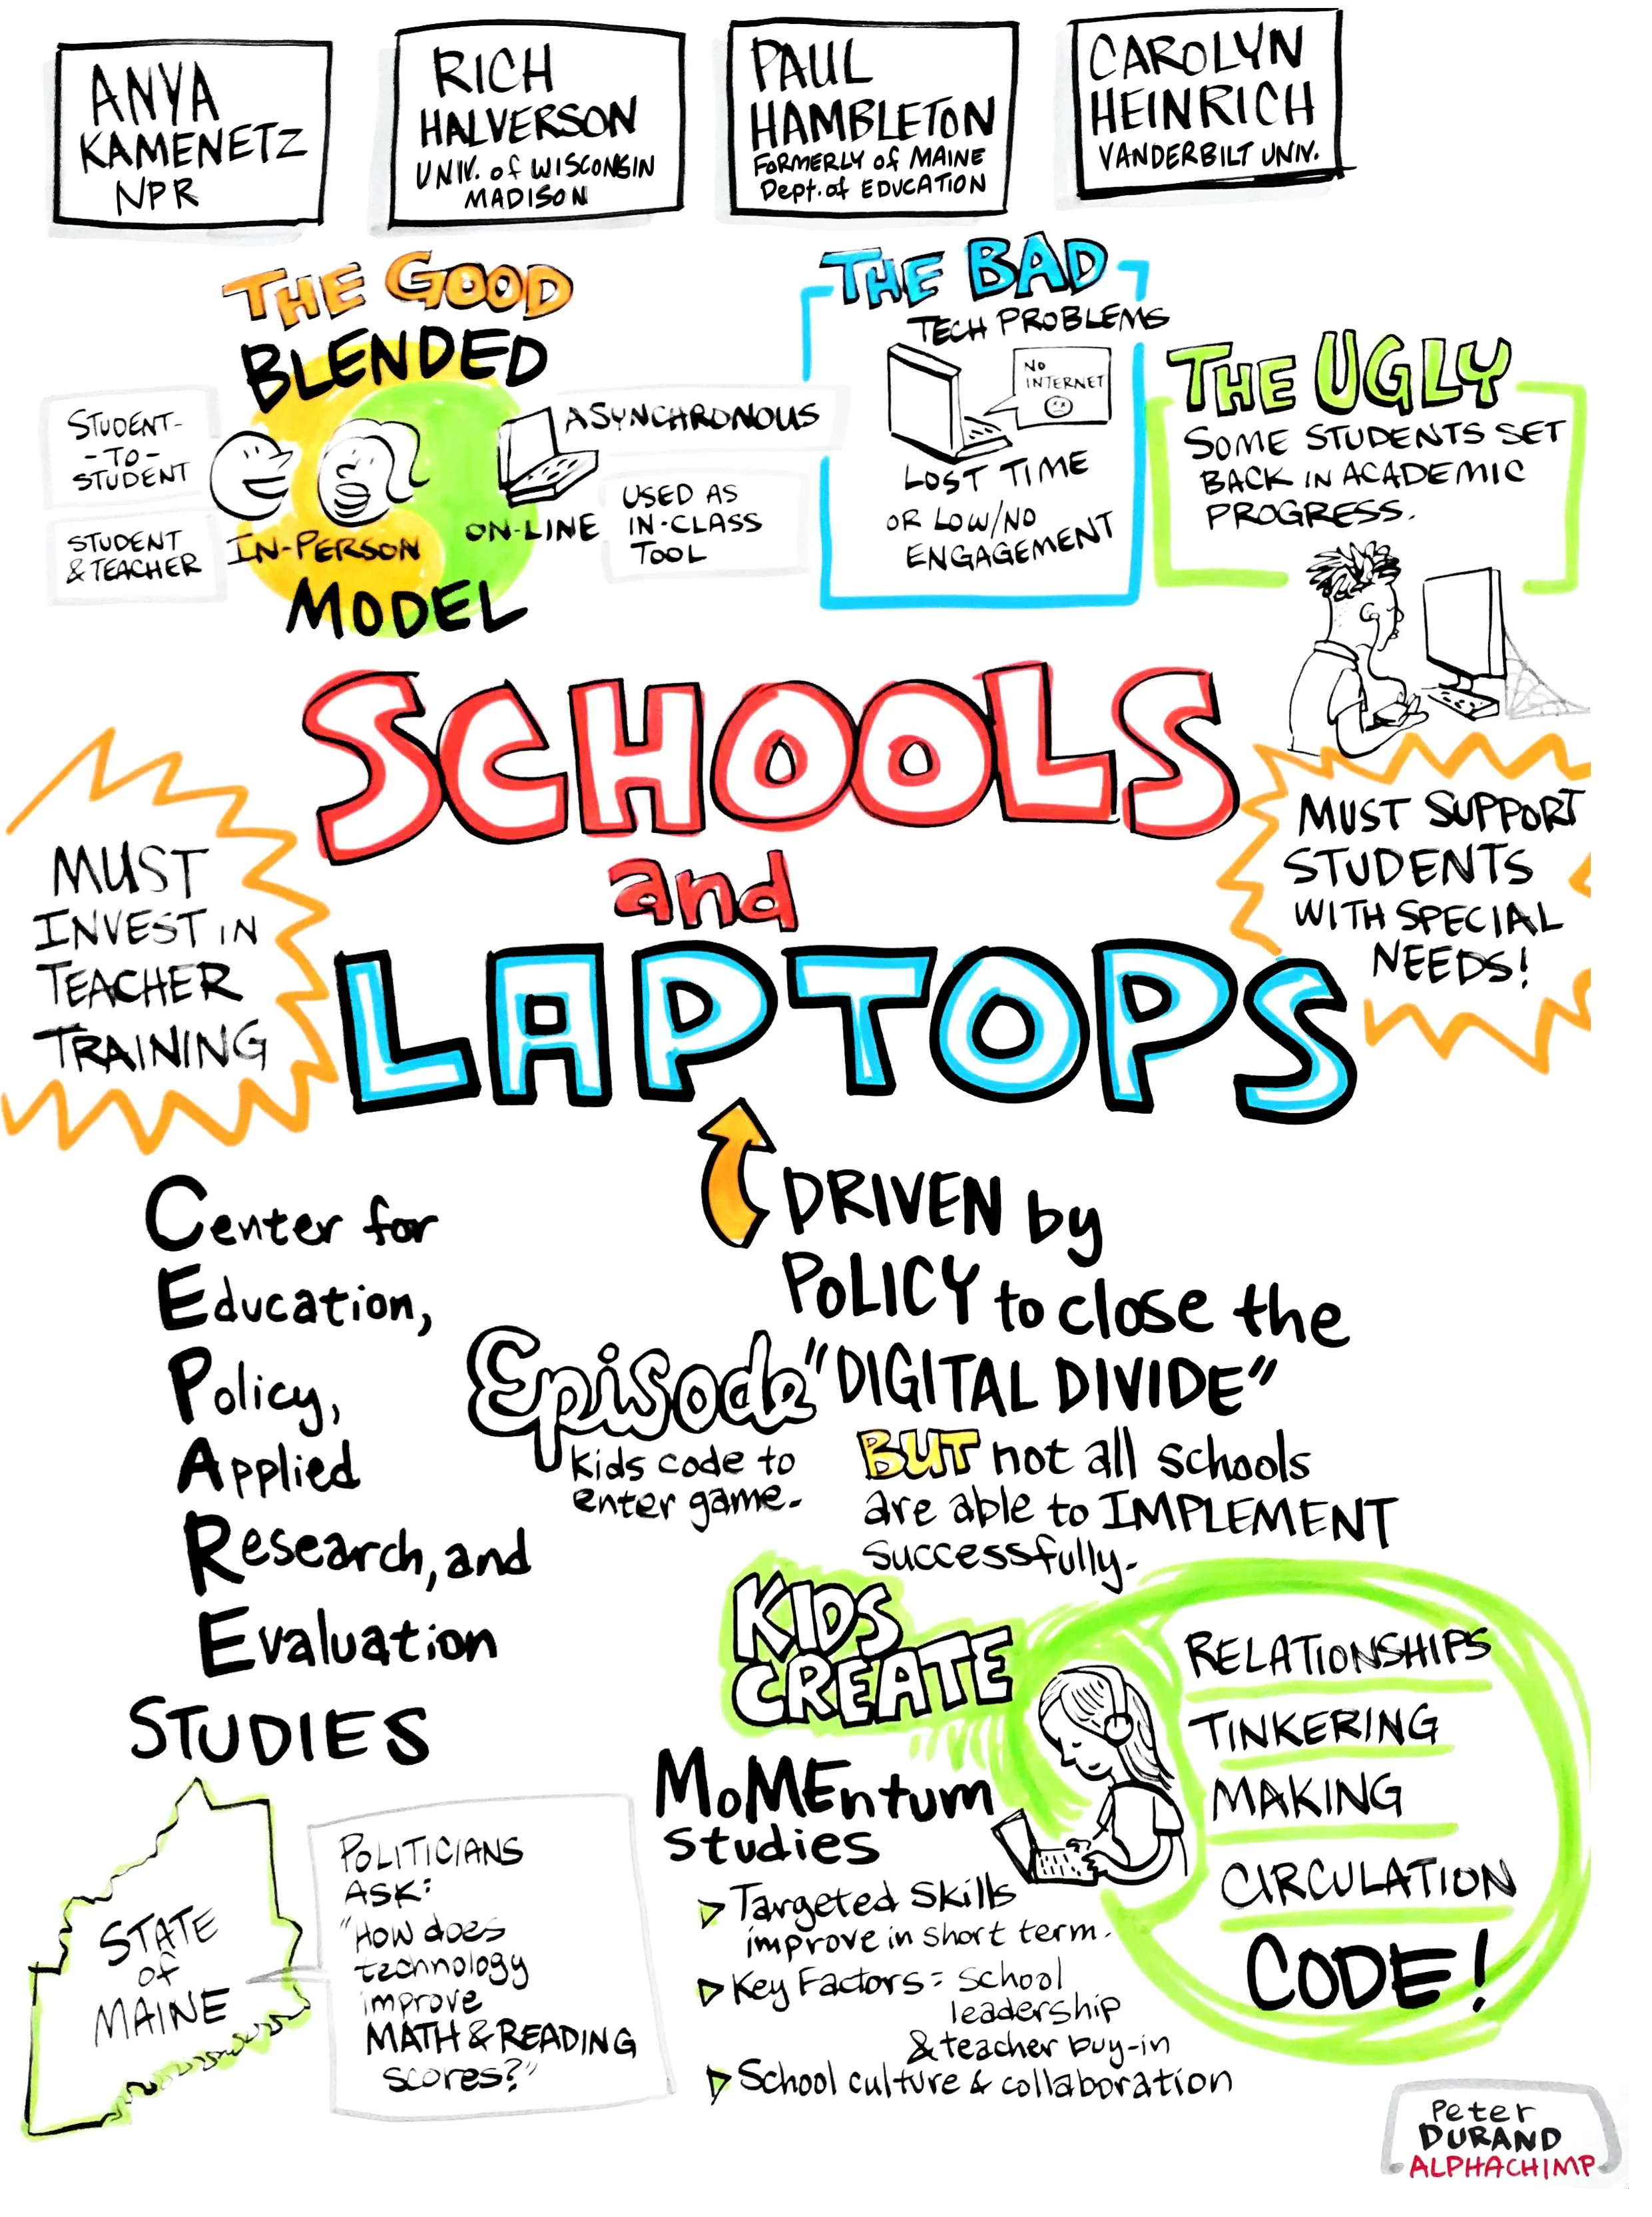 ANYA
KAMENETZ
NPR
RICH
HALVERSON
UNIV. of WISCONSIN
MADISON
PAUL
HAMBLETON
FORMERLY of MAINE
Dept. of EDUCATION
CAROLYN
HEINRICH
VANDERBILT UNIV.
THE GOOD
BLENDED
STUDENT-
-TO-
STUDENT
STUDENT
& TEACHER
IN-PERSON
ON-LINE
ASYNCHRONOUS
USED AS
IN-CLASS
TOOL
MODEL
THE BAD
TECH PROBLEMS
NO
INTERNET
LOST TIME
OR LOW/NO
ENGAGEMENT
THE UGLY
SOME STUDENTS SET
BACK IN ACADEMIC
PROGRESS.
SCHOOLS
and
LAPTOPS
MUST
INVEST IN
TEACHER
TRAINING
MUST SUPPORT
STUDENTS
WITH SPECIAL
NEEDS!
DRIVEN by
POLICY to close the
"DIGITAL DIVIDE"
BUT not all schools
are able to IMPLEMENT
successfully.
Center for
Education,
Policy,
Applied
Research, and
Evaluation
Episode
kids code to
enter game.
KIDS
CREATE
RELATIONSHIPS
TINKERING
MAKING
CIRCULATION
CODE!
STUDIES
STATE
of
MAINE
POLITICIANS
ASK:
"How does
technology
improve
MATH & READING
scores?"
MoMEntum
Studies
Targeted skills
improve in short term.
Key Factors = school
leadership
& teacher buy-in
School culture & collaboration
Peter
DURAND
ALPHACHIMP